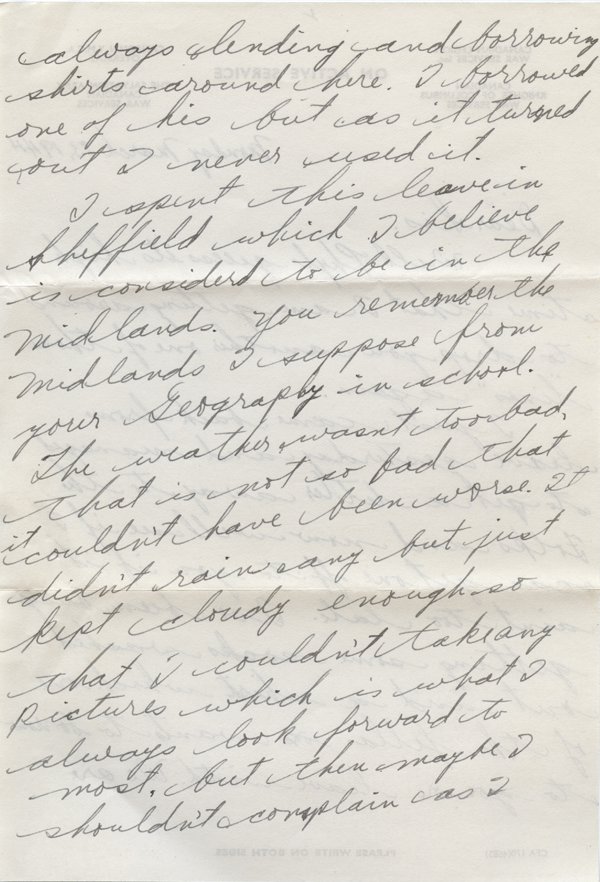 always lending and borrowing
shirts around here. I borrowed
one of his but as it turned
out I never used it.
I spent this leave in
Sheffield which I believe
is considerd to be in the
Midlands. You remember the
Midlands I suppose from
your Geography in school.
The weather wasnt too bad,
that is not so bad that
it couldn't have been worse. It
didn't rain any but just
kept cloudy enough so
that I couldn't take any
pictures which is what I
always look forward to
most, but then maybe I
shouldn't complain as I
ON ACTIVE SERVICE
PLEASE WRITE ON BOTH SIDES